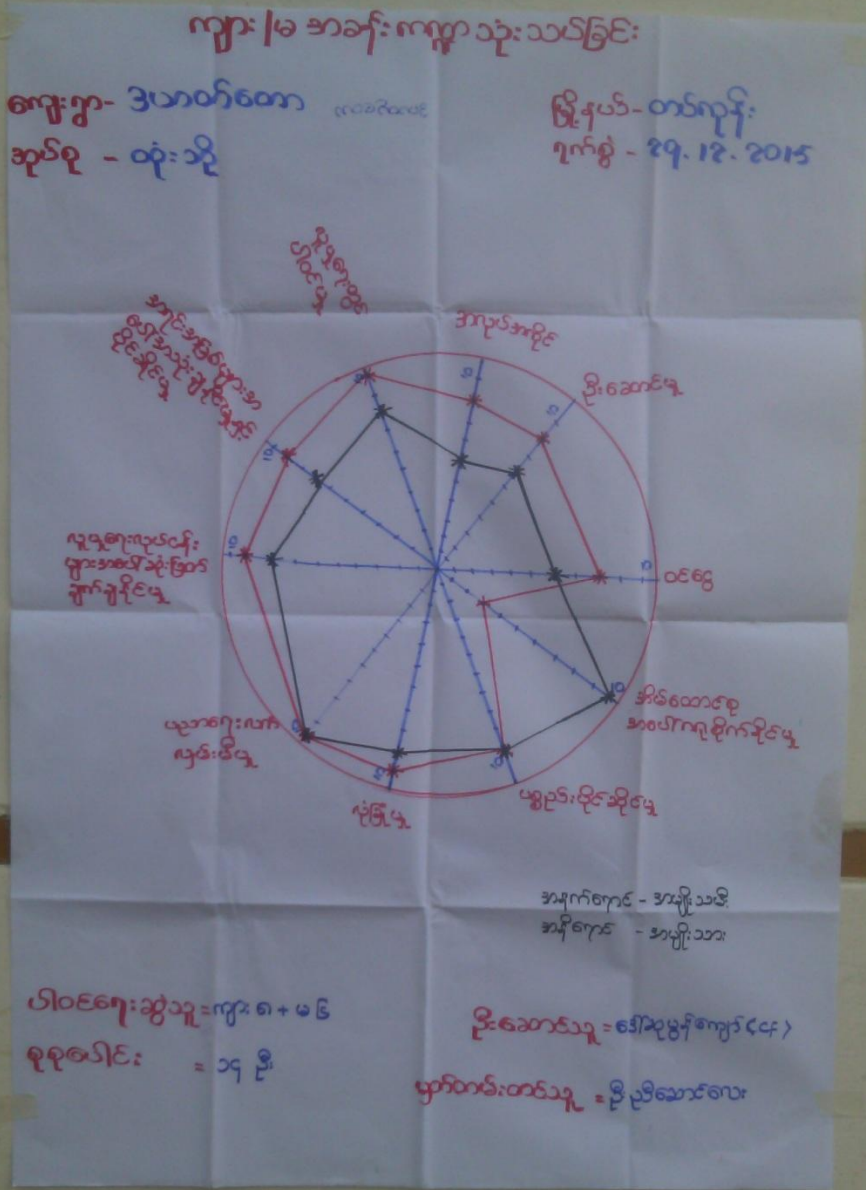 ကျား/မ အခန်းကဏ္ဍသုံးသပ်ခြင်း
ကျေးရွာ - ဒယာဝတ်တော
မြို့နယ် - တပ်ကုန်း
အုပ်စု - ထုံးဘို
ရက်စွဲ - 29.12.2015
လူမှုရေးတွင်
ပါဝင်မှု
အရင်းအမြစ်များအ
ပေါ်အသုံးချနိုင်မှုနှင့်
ပိုင်ဆိုင်မှု
အလုပ်အကိုင်
ဦးဆောင်မှု
10
10
10
10
10
10
10
10
လူမှုရေးလုပ်ငန်း
များအပေါ်ဆုံးဖြတ်
ချက်ချနိုင်မှု
ဝင်ငွေ
အိမ်ထောင်စု
အပေါ်ဂရုစိုက်နိုင်မှု
ပညာရေးလက်
လှမ်းမီမှု
လုံခြုံမှု
ပစ္စည်းပိုင်ဆိုင်မှု
အနက်ရောင် - အမျိုးသမီး
အနီရောင် - အမျိုးသား
ပါဝင်ရေးဆွဲသူ = ကျား ၈ + မ ၆
စုစုပေါင်း = ၁၄ ဦး
ဦးဆောင်သူ = ဒေါ်ဆုမွန်ကျော် (CF)
မှတ်တမ်းတင်သူ = ဦးညီဆောင်လေး